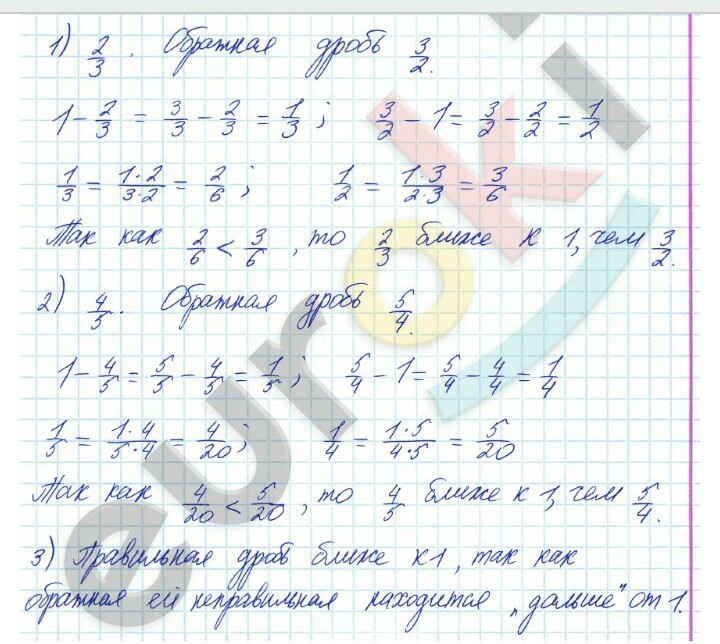 1) 2/3. Обратная дробь 3/2.
1 - 2/3 = 3/3 - 2/3 = 1/3; 3/2 - 1 = 3/2 - 2/2 = 1/2
1/3 = 1·2/3·2 = 2/6; 1/2 = 1·3/2·3 = 3/6
Так как 2/6 < 3/6, то 2/3 ближе к 1, чем 3/2.
2) 4/5. Обратная дробь 5/4.
1 - 4/5 = 5/5 - 4/5 = 1/5; 5/4 - 1 = 5/4 - 4/4 = 1/4
1/5 = 1·4/5·4 = 4/20; 1/4 = 1·5/4·5 = 5/20
Так как 4/20 < 5/20, то 4/5 ближе к 1, чем 5/4.
3) Правильная дробь ближе к 1, так как
обратная ей неправильная находится „дальше" от 1.
euroki